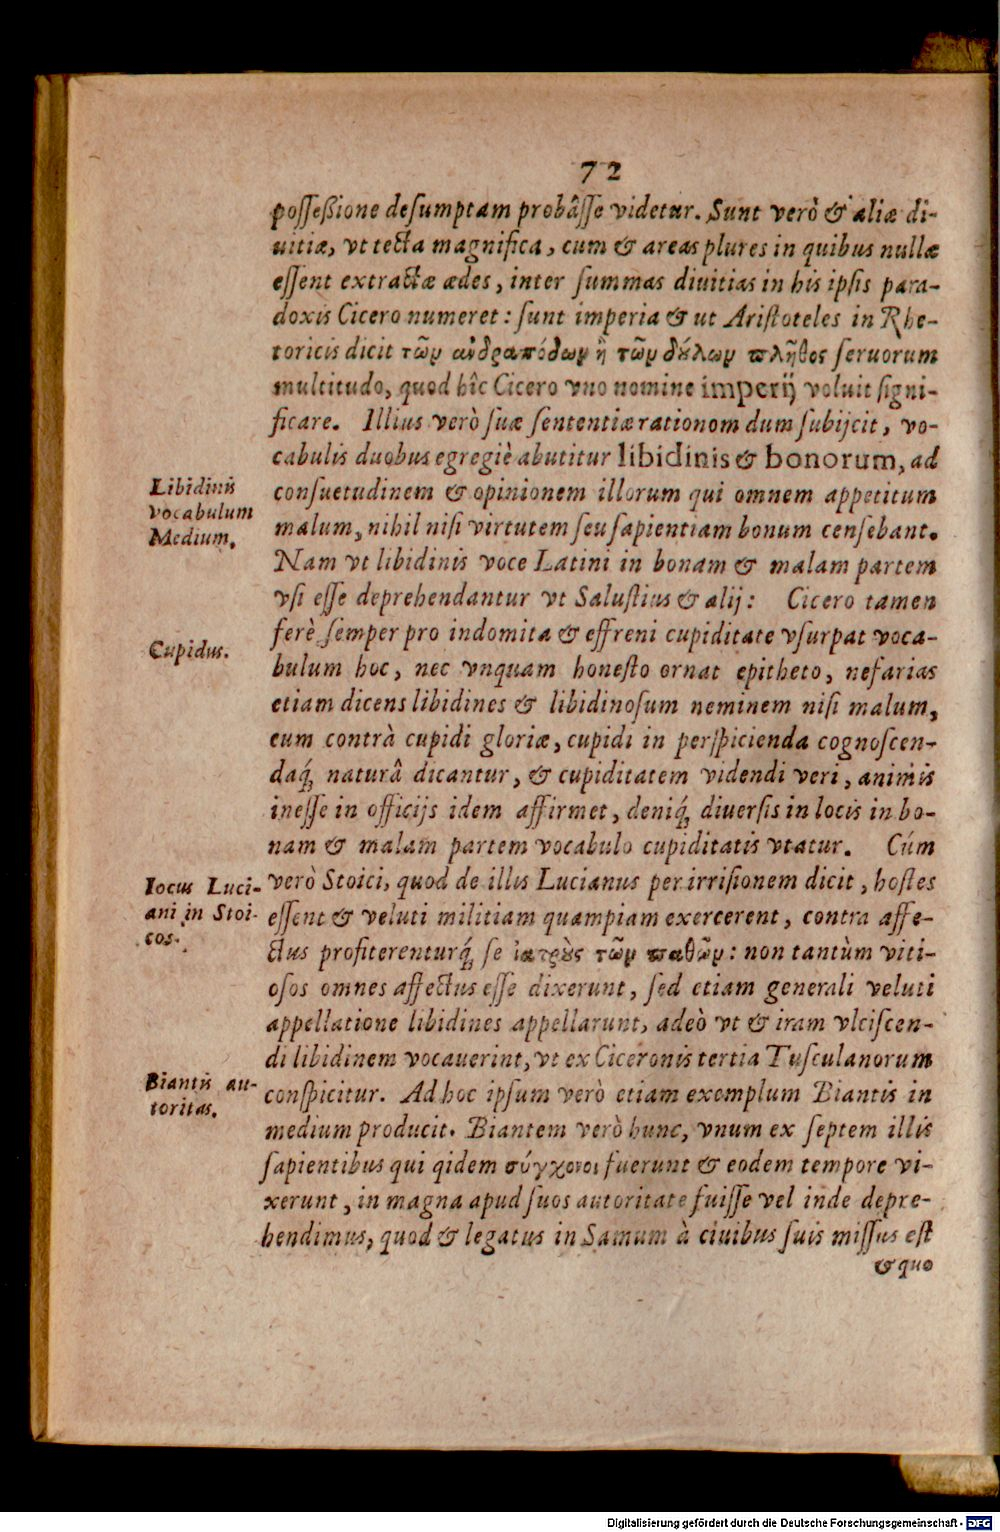 72
poſſeßione deſumptam probâſſe videtur. Sunt verò & aliæ di-
uitiæ, vt tecta magnifica, cum & areas plures in quibus nullæ
eſſent extractæ ædes, inter ſummas diuitias in his ipſis para-
doxis Cicero numeret: ſunt imperia & ut Ariſtoteles in Rhe-
toricis dicit τῶν ἀνδραπόδων ἢ τῶν δούλων πλῆθος ſeruorum
multitudo, quod hîc Cicero vno nomine imperij voluit ſigni-
ficare. Illius verò ſuæ ſententiæ rationom dum ſubijcit, vo-
cabulis duobus egregiè abutitur libidinis & bonorum, ad
Libidinis
vocabulum
Medium.
conſuetudinem & opinionem illorum qui omnem appetitum
malum, nihil niſi virtutem ſeu ſapientiam bonum cenſebant.
Nam vt libidinis voce Latini in bonam & malam partem
vſi eſſe deprehendantur vt Saluſtius & alij: Cicero tamen
ferè ſemper pro indomita & effreni cupiditate vſurpat voca-
Cupidus.
bulum hoc, nec vnquam honeſto ornat epitheto, nefarias
etiam dicens libidines & libidinoſum neminem niſi malum,
cum contrà cupidi gloriæ, cupidi in perſpicienda cognoſcen-
daq́; naturâ dicantur, & cupiditatem videndi veri, animis
ineſſe in officijs idem affirmet, deniq́; diuerſis in locis in bo-
nam & malam partem vocabulo cupiditatis vtatur. Cúm
Iocus Luci-
ani in Stoi-
cos.
verò Stoici, quod de illis Lucianus per irriſionem dicit, hoſtes
eſſent & veluti militiam quampiam exercerent, contra affe-
ctus profiterenturq́; ſe ἰατροὺς τῶν παθῶν: non tantùm viti-
oſos omnes affectus eſſe dixerunt, ſed etiam generali veluti
appellatione libidines appellarunt, adeò vt & iram vlciſcen-
di libidinem vocauerint, vt ex Ciceronis tertia Tuſculanorum
Biantis au-
toritas.
conſpicitur. Ad hoc ipſum verò etiam exemplum Biantis in
medium producit. Biantem verò hunc, vnum ex ſeptem illis
ſapientibus qui qidem σύγχονοι fuerunt & eodem tempore vi-
xerunt, in magna apud ſuos autoritate fuiſſe vel inde depre-
hendimus, quod & legatus in Samum à ciuibus ſuis miſſus eſt
& quo
Digitalisierung gefördert durch die Deutsche Forschungsgemeinschaft - DFG